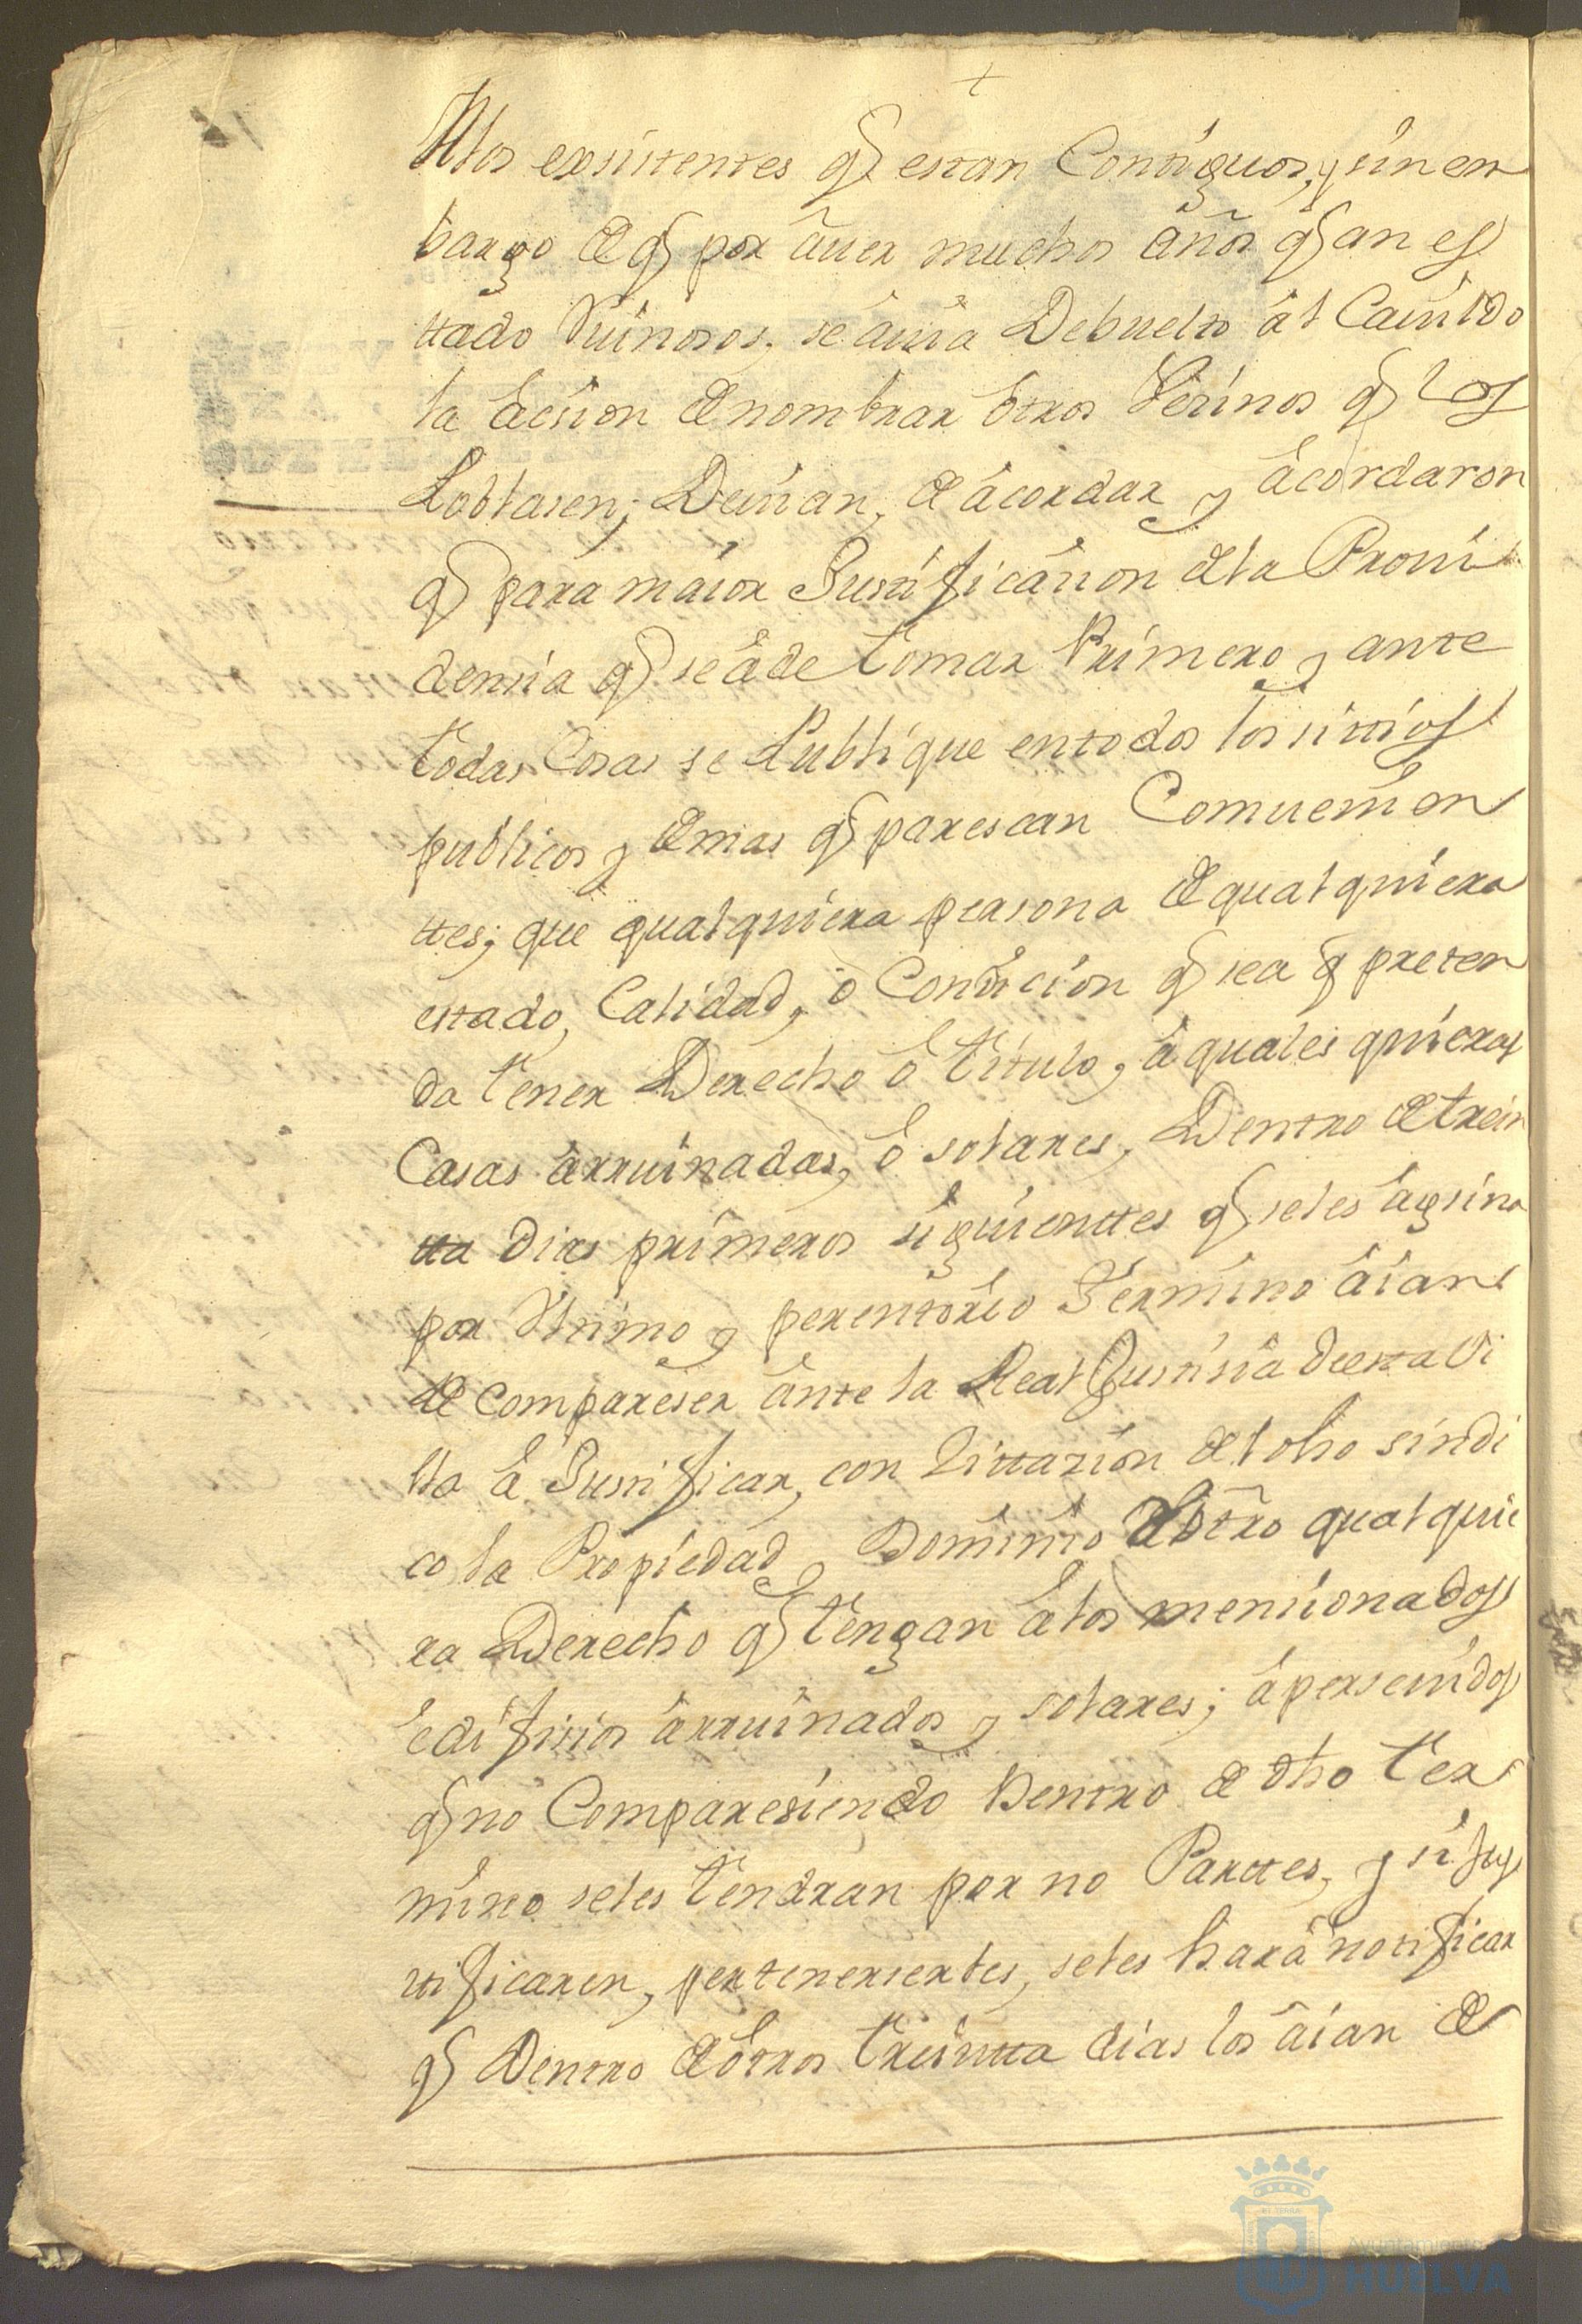 +
A los exsistentes q.e estan Contiguos, y sin en
bargo de q.e por auer muchos años q.e an es
ttado Ruinosos, se auia Debuelto al Cauildo
la acsion de nombrar otros Vesinos q.e los
Poblasen; Deuian, de acordar y acordaron
q.e para maior Justificasion de la Proui
densia q.e se a de tomar Primero y ante
todas Cosas se Publique en todos los sittios
publicos y demas q.e parescan Comuenien
ttes; que qualquiera persona de qualquiera
estado, Calidad, o Condicion q.e sea q.e preten
da tener Derecho o titulo, a quales quieras
Casas arruinadas, o solares, Dentro de trein
tta dias primeros siguienttes q.e se les asigna
por Vltimo y perentorio Termino aian
de compareser ante la Real Justisia de esta Vi
lla a Justificar, con Sittazion del dho sindi
co la Propiedad y Dominio de otro qualquie
ra Derecho q.e tengan a los mensionados
edifisios arruinados y solares; aperseuidos
q.e no Comparesiendo Dentro de dho ter
mino se les tendran por no Parttes, y si jus
tificaren, pertenerserles, se les hara notificar
q.e Dentro de otros treintta dias los aian de
Ayuntamiento
HUELVA